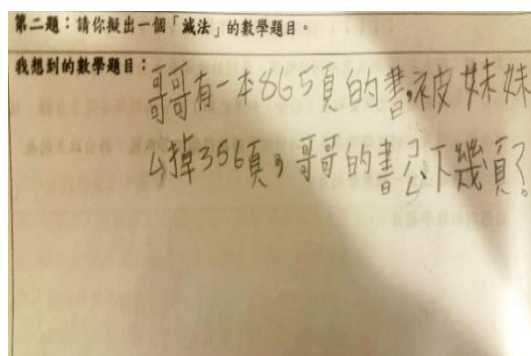 第二題：請你擬出一個「減法」的數學題目。
我想到的數學題目：
哥哥有一本865頁的書，被妹妹
ㄙ掉356頁，哥哥的書ㄕㄥˋ下幾頁？